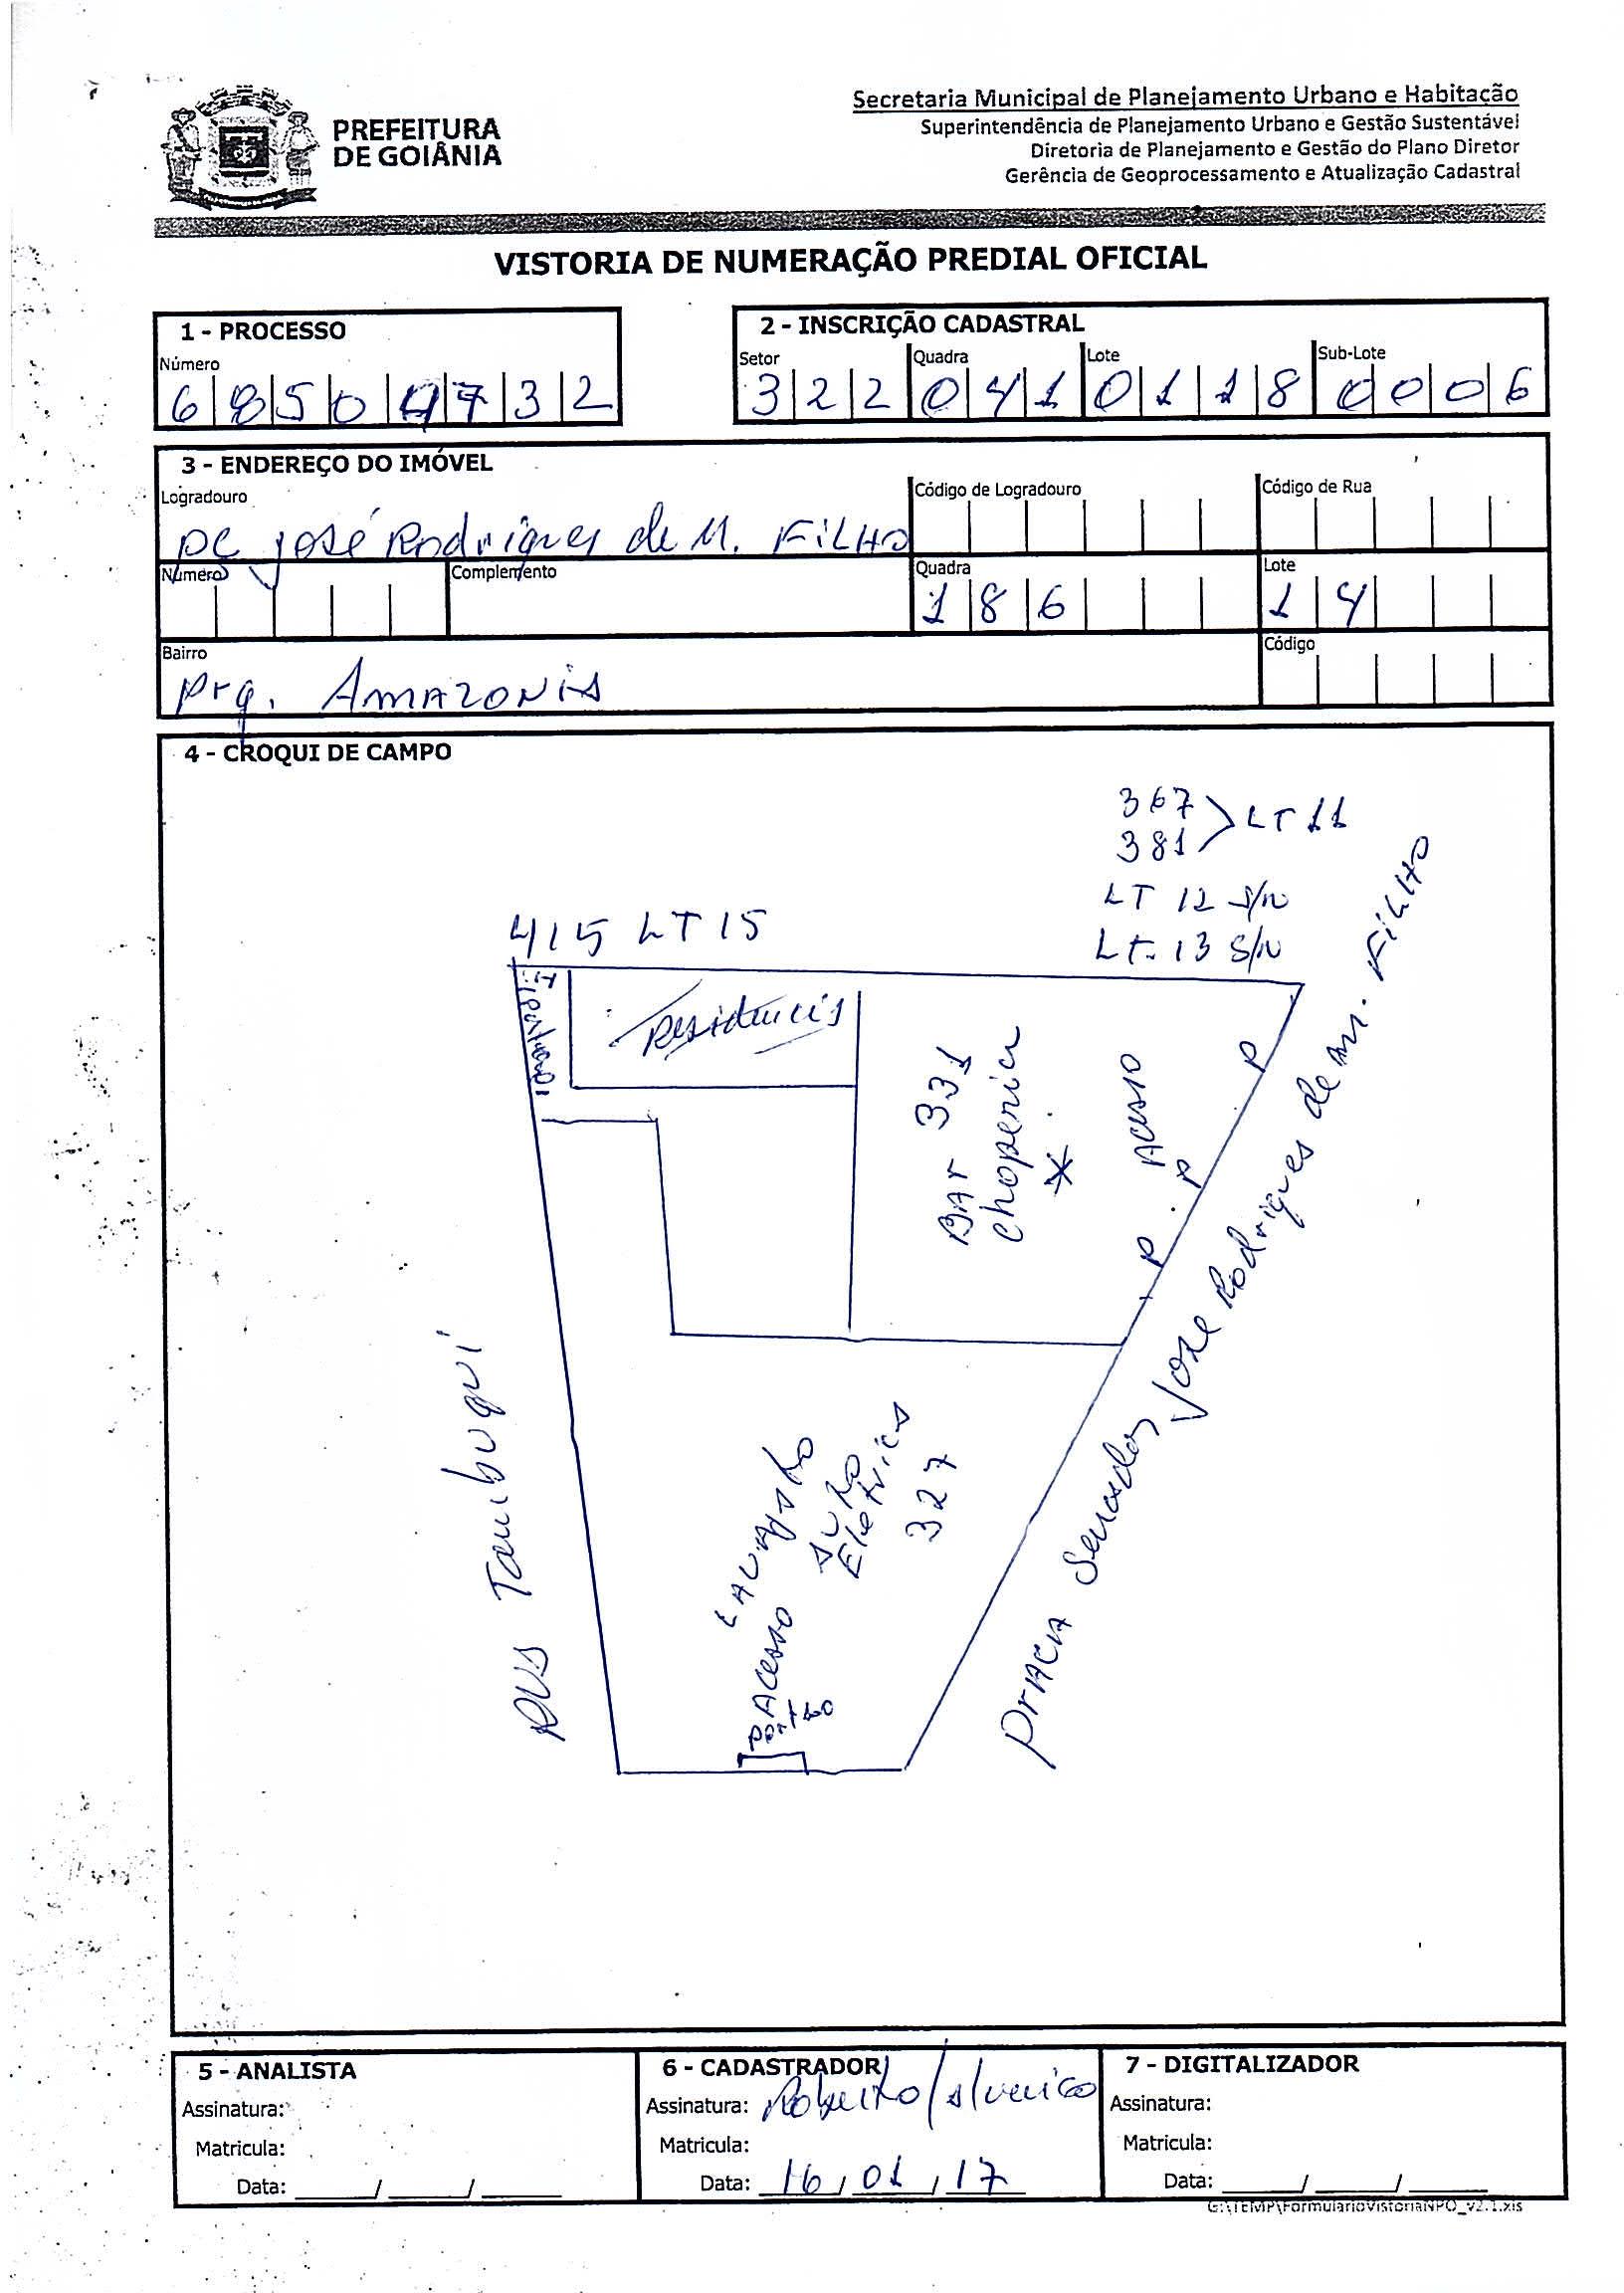 PREFEITURA
DE GOIÂNIA
Secretaria Municipal de Planejamento Urbano e Habitação
Superintendência de Planejamento Urbano e Gestão Sustentável
Diretoria de Planejamento e Gestão do Plano Diretor
Gerência de Geoprocessamento e Atualização Cadastral
VISTORIA DE NUMERAÇÃO PREDIAL OFICIAL
1 - PROCESSO
Número
6 8 5 0 4 7 3 2
2 - INSCRIÇÃO CADASTRAL
Setor Quadra Lote Sub-Lote
3 2 2 0 4 1 0 1 1 8 0 0 0 6
3 - ENDEREÇO DO IMÓVEL
Logradouro Código de Logradouro Código de Rua
Pç José Rodrigues de M. FILHO
Número Complemento Quadra Lote
1 8 6 1 4
Bairro Código
Prq. AMAZONIA
4 - CROQUI DE CAMPO
367
381 LT 11
LT 12 S/N
LT. 13 S/N
415 LT 15
Residencia
BAr 331
choperia
*
Acesso
P
P
P
Rua Tambuqui
Praça Senador José Rodrigues de M. FILHO
LAVAJATO
AUTO
Eletrica
327
Acesso
Portão
5 - ANALISTA
Assinatura:
Matricula:
Data: ____/____/____
6 - CADASTRADOR
Assinatura: Roberto /
Matricula:
Data: 16/01/17
7 - DIGITALIZADOR
Assinatura:
Matricula:
Data: ____/____/____
G:\TEMP\FormularioVistoriaNPO_v2.1.xls